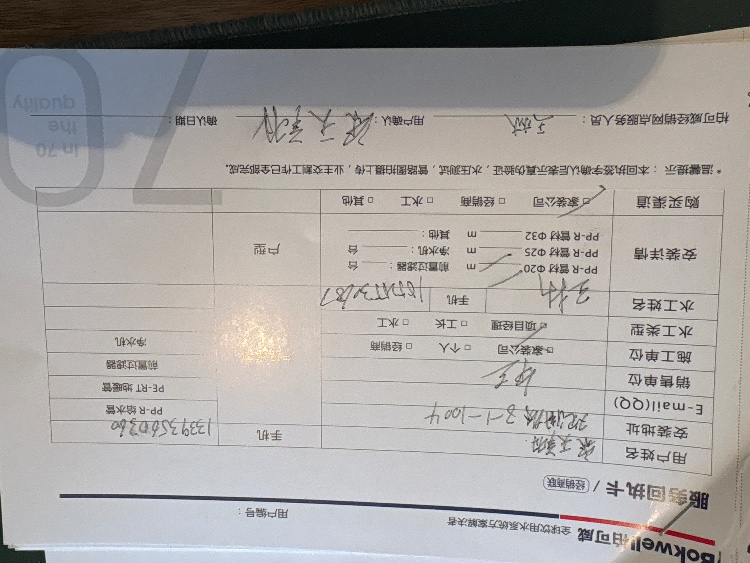 Bokwell柏可威 全球饮用水系统方案解决者 用户编号：
服务回执卡 / 经销商联
用户姓名
安装地址 3-1-1004 手机 13393560360
E-mail(QQ) PP-R 给水管
销售单位 PE-RT 地暖管
施工单位 □家装公司 □个人 □经销商 前置过滤器
水工类型 □项目经理 □工长 □水工 净水机
水工姓名 手机
安装详情 PP-R 管材 Φ20 m 前置过滤器： 台 户型
PP-R 管材 Φ25 m 净水机： 台
PP-R 管材 Φ32 m 其他：
购买渠道 □家装公司 □经销商 □水工 □其他
*温馨提示：本回执签字确认后表示真伪验证，水压测试，管路图拍摄上传，业主交割工作已全部完成。
柏可威经销网点服务人员： 用户确认： 确认日期：
In 70
the
quality
70